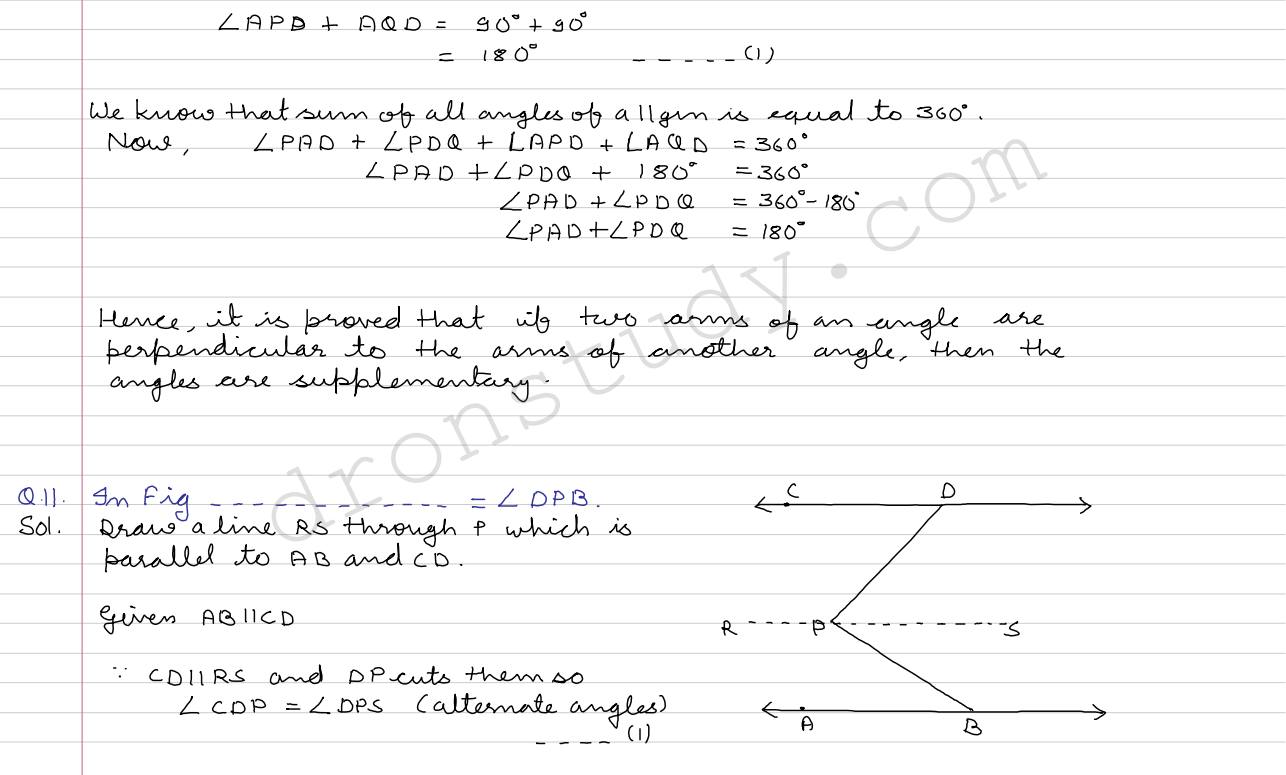 ∠APD + AQD = 90° + 90°
= 180° -----(1)
We know that sum of all angles of a ||gm is equal to 360°.
Now, ∠PAD + ∠PDQ + ∠APD + ∠AQD = 360°
∠PAD + ∠PDQ + 180° = 360°
∠PAD + ∠PDQ = 360° - 180°
∠PAD + ∠PDQ = 180°
Hence, it is proved that if two arms of an angle are
perpendicular to the arms of another angle, then the
angles are supplementary.
dronstudy.com
Q.11. In Fig -------------- = ∠DPB.
Sol. Draw a line RS through P which is
parallel to AB and CD.
Given AB||CD
∵ CD||RS and DP cuts them so
∠CDP = ∠DPS (alternate angles)
----(1)
C D
R P S
A B